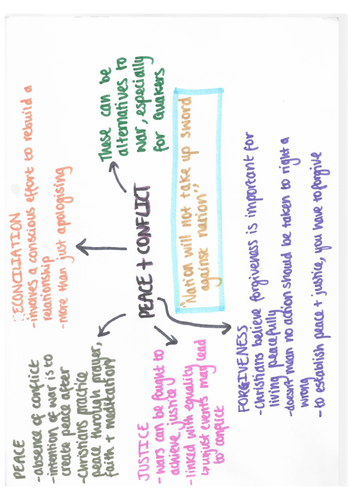 PEACE
-absence of conflict
-intention of war is to
create peace after
-Christians practice
peace through prayer,
faith + meditation
RECONCILIATION
-involves a conscious effort to rebuild a
relationship
-more than just apologising
These can be
alternatives to
war, especially
for quakers
PEACE + CONFLICT
"Nation will not take up sword
against nation"
JUSTICE
-wars can be fought to
achieve justice
-linked with equality
↳unjust events may lead
to conflict
FORGIVENESS
-Christians believe forgiveness is important for
living peacefully
-doesn't mean no action should be taken to right a
wrong
-to establish peace + justice, you have to forgive